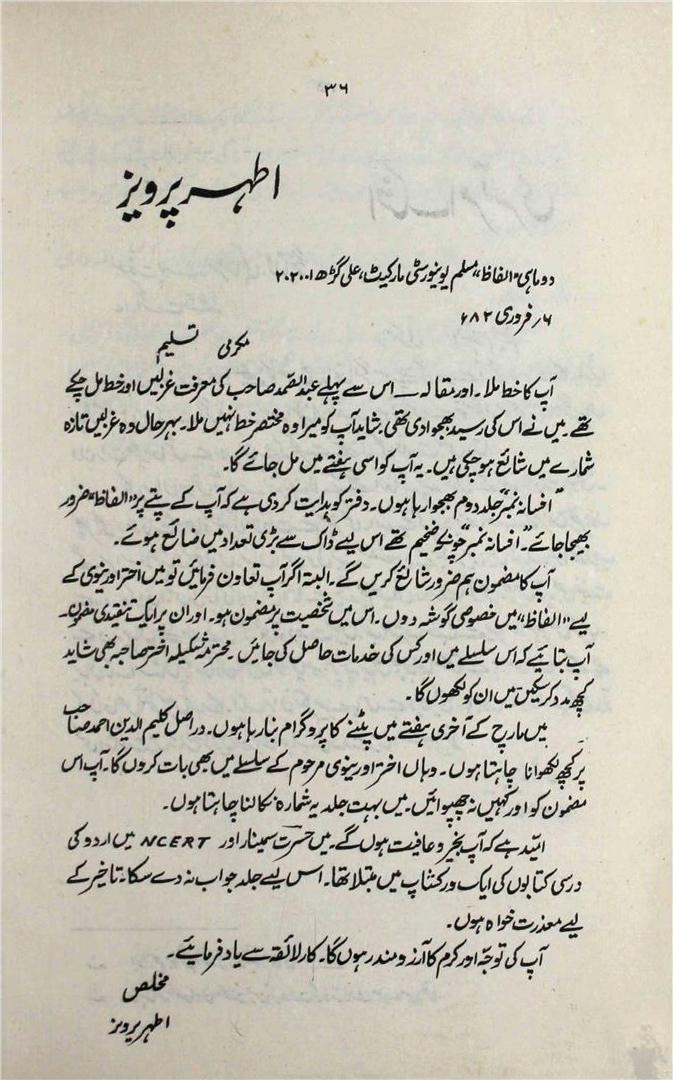 ۳۶
اطہر پرویز
دو ماہی "الفاظ"، مسلم یونیورسٹی مارکیٹ، علی گڑھ ۲۰۲۰۰۱
۶؍ فروری ۸۲ء
مکرمی تسلیم
آپ کا خط ملا۔ اور مقالہ — اس سے پہلے عبدالصمد صاحب کی معرفت غزلیں اور خط مل چکے
تھے۔ میں نے اس کی رسید بھجوا دی تھی۔ شاید آپ کو میرا وہ مختصر خط نہیں ملا۔ بہر حال وہ غزلیں تازہ
شمارے میں شائع ہو چکی ہیں۔ یہ آپ کو اسی ہفتے میں مل جائے گا۔
"افسانہ نمبر" جلد دوم بھجوا رہا ہوں۔ دفتر کو ہدایت کر دی ہے کہ آپ کے پتے پر "الفاظ" ضرور
بھیجا جائے۔ "افسانہ نمبر" چونکہ ضخیم تھے اس لیے ڈاک سے بڑی تعداد میں ضائع ہوئے۔
آپ کا مضمون ہم ضرور شائع کریں گے۔ البتہ اگر آپ تعاون فرمائیں تو میں اختر اورینوی کے
لیے "الفاظ" میں خصوصی گوشہ دوں۔ اس میں شخصیت پر مضمون ہو۔ اور ان پر ایک تنقیدی مضمون۔
آپ بتائیے کہ اس سلسلے میں اور کس کی خدمات حاصل کی جائیں۔ محترمہ شکیلہ اختر صاحبہ بھی شاید
کچھ مدد کر سکیں میں ان کو لکھوں گا۔
میں مارچ کے آخری ہفتے میں پٹنے کا پروگرام بنا رہا ہوں۔ دراصل کلیم الدین احمد صاحب
پر کچھ لکھوانا چاہتا ہوں۔ وہاں اختر اورینوی مرحوم کے سلسلے میں بھی بات کروں گا۔ آپ اس
مضمون کو اور کہیں نہ چھپوائیں۔ میں بہت جلد یہ شمارہ نکالنا چاہتا ہوں۔
امید ہے کہ آپ بخیر و عافیت ہوں گے۔ میں حسرت سمینار اور NCERT میں اردو کی
درسی کتابوں کی ایک ورکشاپ میں مبتلا تھا۔ اس لیے جلد جواب نہ دے سکا۔ تاخیر کے
لیے معذرت خواہ ہوں۔
آپ کی توجہ اور کرم کا آرزو مند رہوں گا۔ کار لائقہ سے یاد فرمائیے۔
مخلص
اطہر پرویز